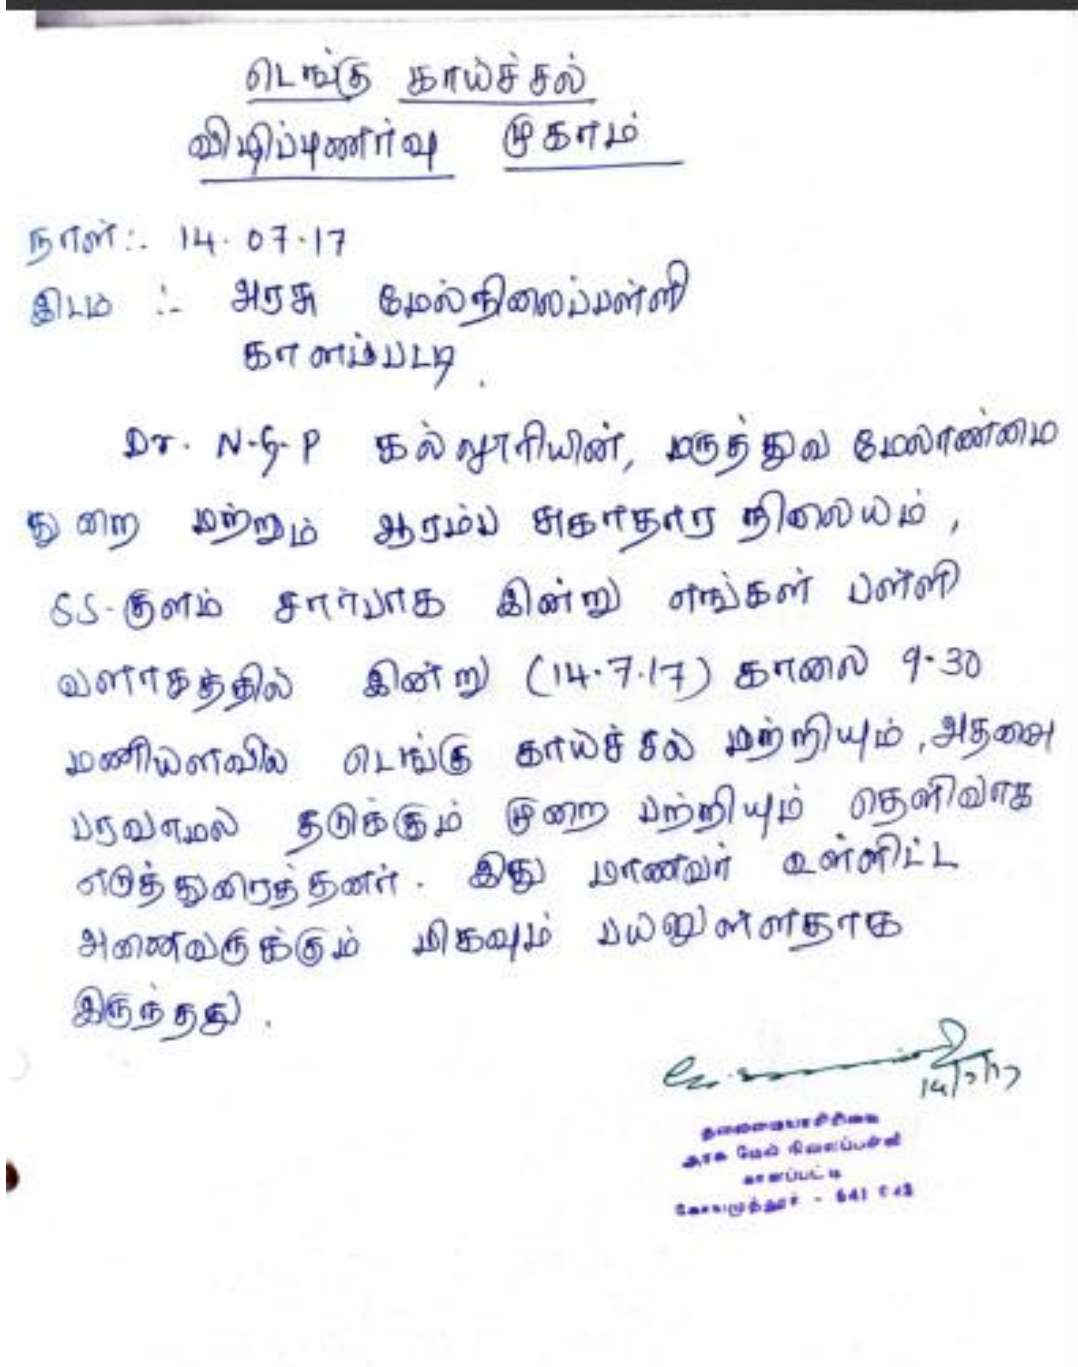 டெங்கு காய்ச்சல்
விழிப்புணர்வு முகாம்
நாள்:- 14.07.17
இடம் :- அரசு மேல்நிலைப்பள்ளி
காளம்பட்டி.
Dr. N.G.P கல்லூரியின், மருத்துவ மேலாண்மை
துறை மற்றும் ஆரம்ப சுகாதார நிலையம்,
SS-குளம் சார்பாக இன்று எங்கள் பள்ளி
வளாகத்தில் இன்று (14.7.17) காலை 9.30
மணியளவில் டெங்கு காய்ச்சல் பற்றியும், அதனை
பரவாமல் தடுக்கும் முறை பற்றியும் தெளிவாக
எடுத்துரைத்தனர். இது மாணவர் உள்ளிட்ட
அணைவருக்கும் மிகவும் பயனுள்ளதாக
இருந்தது.
14/7/17
தலைமையாசிரியை
அரசு மேல் நிலைப்பள்ளி
காளப்பட்டி
கோயமுத்தூர் - 641